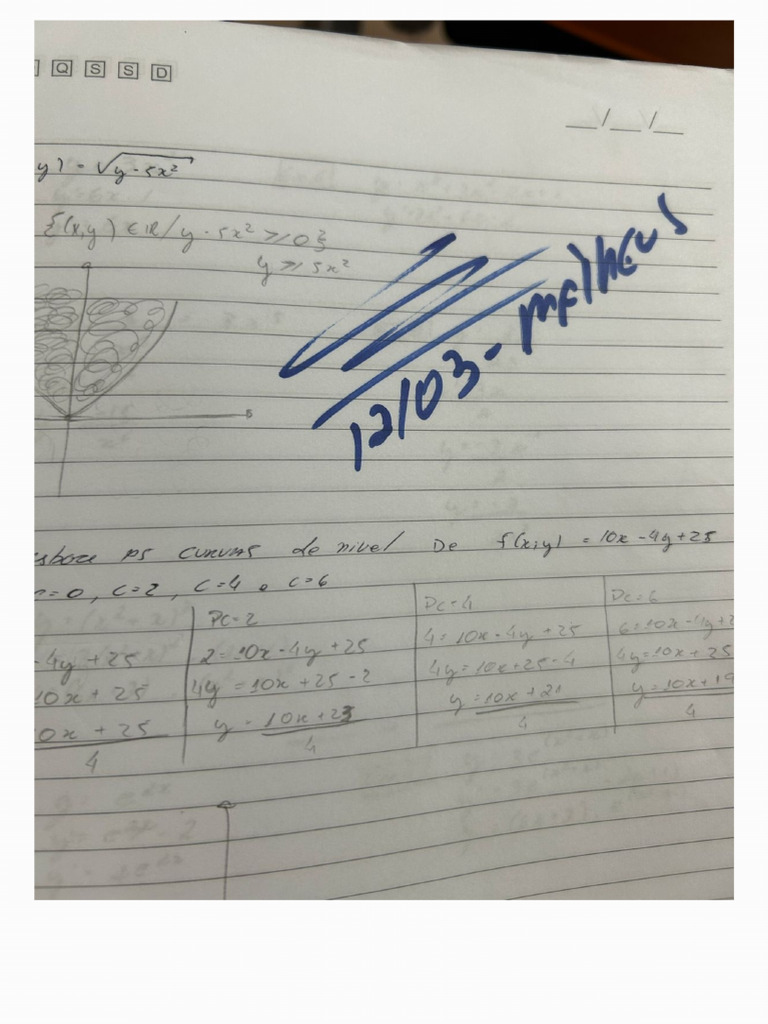 Q S S D
__/__/__
y) = √y - 5x²
{(x,y) ∈ IR / y - 5x² ≥ 0}
y ≥ 5x²
12/03 - Matheus
as curvas de nivel De f(x,y) = 10x - 4y + 25
c=0, C=2, C=4 e C=6
Pc=2
Pc=4
Pc=6
- 4y + 25
2 = 10x - 4y + 25
4 = 10x - 4y + 25
6 = 10x - 4y + 2
10x + 25
4y = 10x + 25 - 2
4y = 10x + 25 - 4
4y = 10x + 25
0x + 25
4
y = 10x + 23
4
y = 10x + 21
4
y = 10x + 19
4